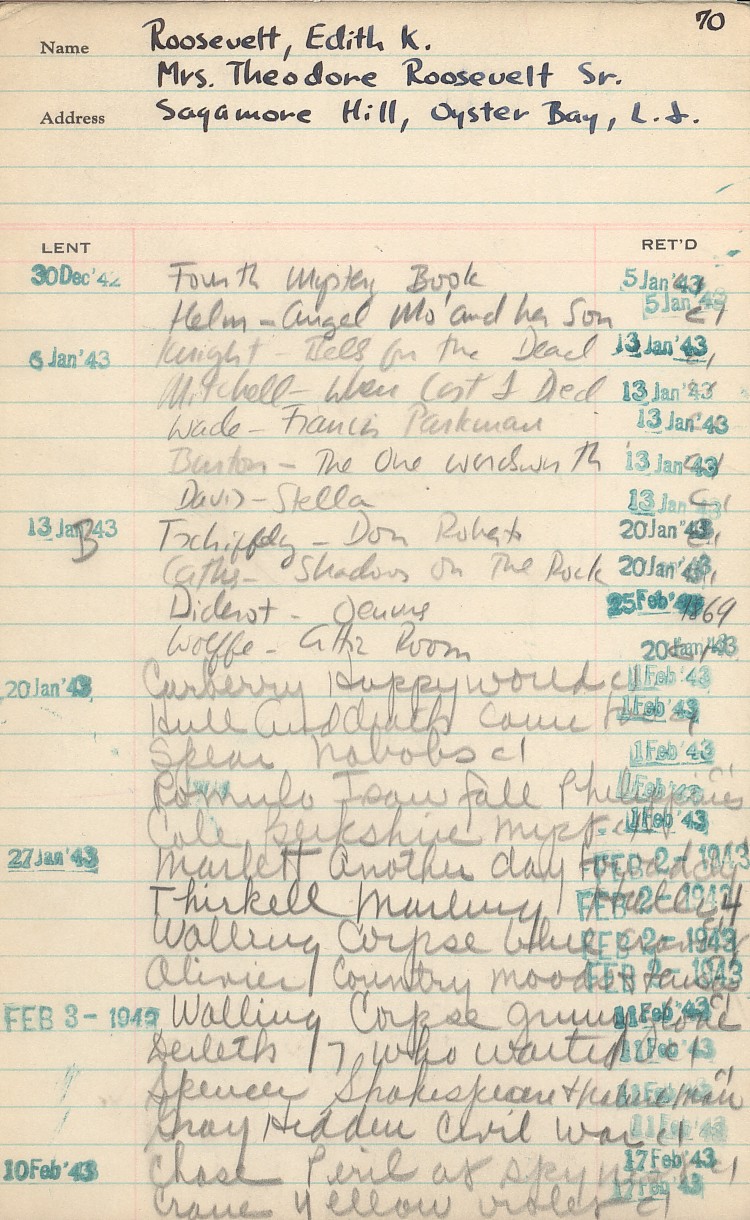 70
Name Roosevelt, Edith K.
Mrs. Theodore Roosevelt Sr.
Address Sagamore Hill, Oyster Bay, L.I.
LENT RET'D
30 Dec '42 Fourth Mystery Book 5 Jan '43
Helm - Angel Mo' and her Son 5 Jan '43
6 Jan '43 Knight - Bells for the Dead 13 Jan '43
Mitchell - When Last I Died 13 Jan '43
Wade - Francis Parkman 13 Jan '43
Burton - The One Wordsworth 13 Jan '43
Davis - Stella 13 Jan '43
13 Jan '43 B Tschiffely - Don Roberto 20 Jan '43
Cather - Shadows on The Rock 20 Jan '43
Diderot - 25 Feb '43 1869
Wolffe - Attic Room 20 Jan '43
20 Jan '43 Carberry Happy world c1 1 Feb '43
Hull And death came 1 Feb '43
Spear Nabobs c1 1 Feb '43
Romulo I saw fall Philippines 1 Feb '43
Cole Berkshire 1 Feb '43
27 Jan '43 Marlett Another day FEB 2 - 1943
Thirkell Marling Hall FEB 2 - 1943
Walling Corpse blue FEB 2 - 1943
Olivier Country moods & FEB 2 - 1943
FEB 3 - 1943 Walling Corpse 11 Feb '43
Derleth who waited c1 11 Feb '43
Spencer Shakespeare + nature man c1 11 Feb '43
Gray Hidden Civil War c1 11 Feb '43
10 Feb '43 Chase Peril at c1 17 Feb '43
Crane Yellow violet c1 17 Feb '43